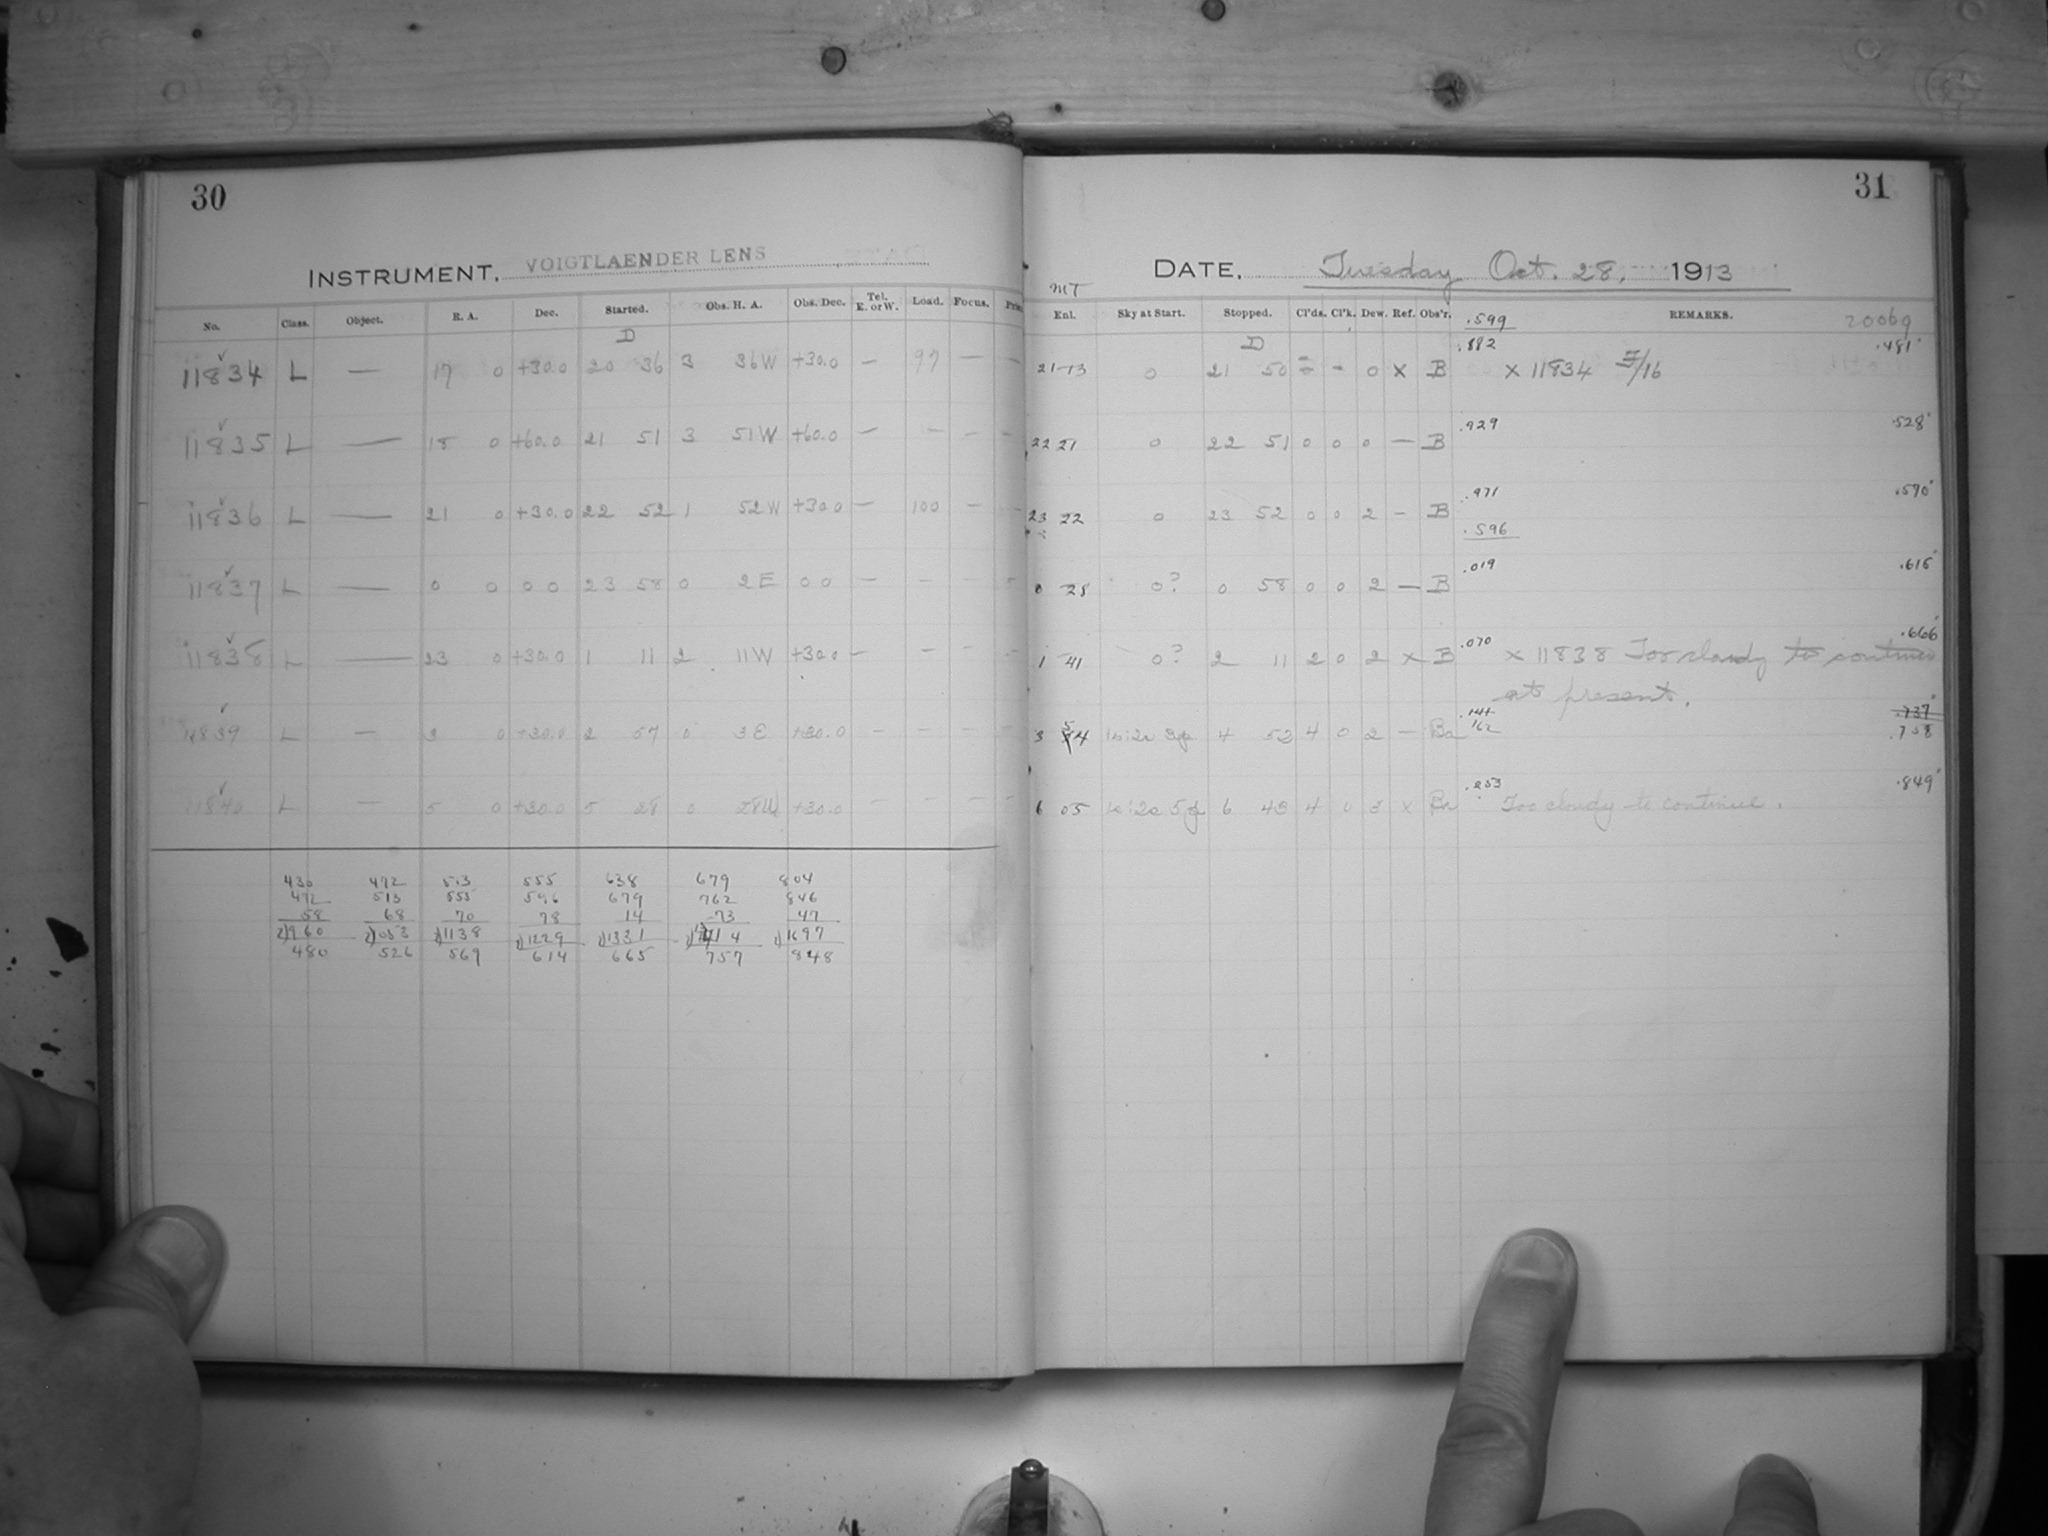 30
INSTRUMENT, VOIGTLAENDER LENS
No. Class. Object. R. A. Dec. Started. Obs. H. A. Obs. Dec. Tel. E. or W. Load. Focus.
D
11834 L — 17 0 +30.0 20 36 3 36W +30.0 — 97 — —
11835 L — 18 0 +60.0 21 51 3 51W +60.0 — — — —
11836 L — 21 0 +30.0 22 52 1 52W +30.0 — 100 — —
11837 L — 0 0 0 0 23 58 0 2E 0 0 — — —
11838 L — 23 0 +30.0 1 11 2 11W +30.0 — — — —
11839 L — 3 0 +30.0 2 57 0 3E +30.0 — — — —
11840 L — 5 0 +30.0 5 28 0 28W +30.0 — — — —
430 472 513 555 638 679 804
472 513 555 596 679 762 846
58 68 70 78 14 73 47
2)960 2)1053 2)1138 2)1229 2)1331 2)1514 2)1697
480 526 569 614 665 757 848
31
DATE, Tuesday Oct. 28, 1913
MT
Enl. Sky at Start. Stopped. Cl'ds. Cl'k. Dew. Ref. Obs'r. .599 REMARKS. 20069
D .882 .481
21 13 0 21 50 0 x B x 11834 F/16
.929 .528
22 21 0 22 51 0 0 0 — B
.971 .570
23 22 0 23 52 0 0 2 — B
.596
.019 .615
0 28 0? 0 58 0 0 2 — B
.070 .666
1 41 0? 2 11 2 0 2 x B x 11838 Too cloudy to continue
at present.
.737
3 54 4 52 4 0 2 — Ba 162 .758
.253 .849
6 05 6 43 4 0 3 x Ba Too cloudy to continue.